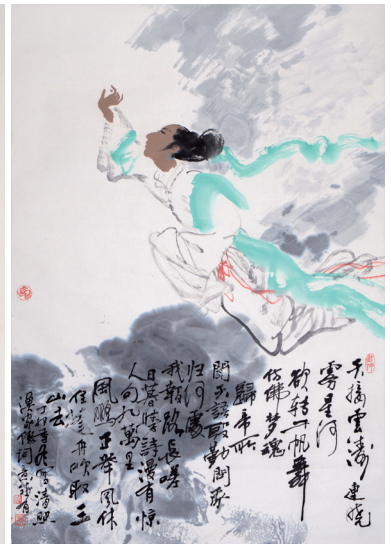 天接雲濤連曉
霧星河
欲转千帆舞
仿佛梦魂
歸帝所
闻天語殷勤問我
归何處
我報路長嗟
日暮學詩漫有惊
人句九萬里
風鵬正举風休
住蓬舟吹取三
山去
清照
漁家傲詞意